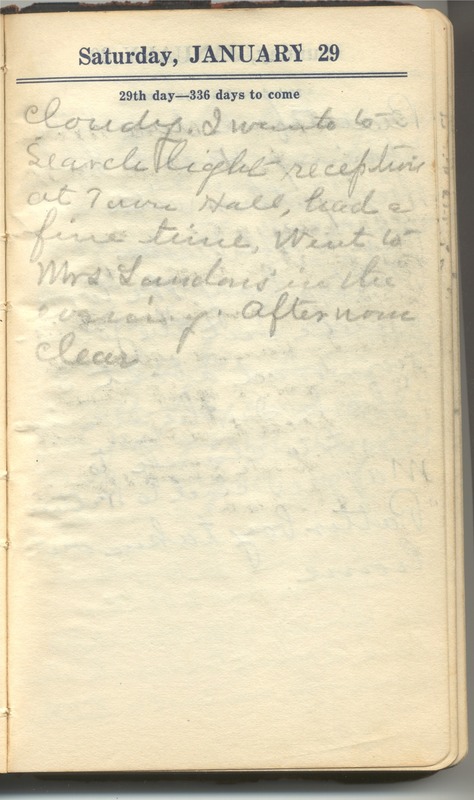 Saturday, JANUARY 29
29th day—336 days to come
Cloudy. I went to
Search light reception
at Town Hall, had a
fine time, Went to
Mrs in the
evening. Afternoon
clear